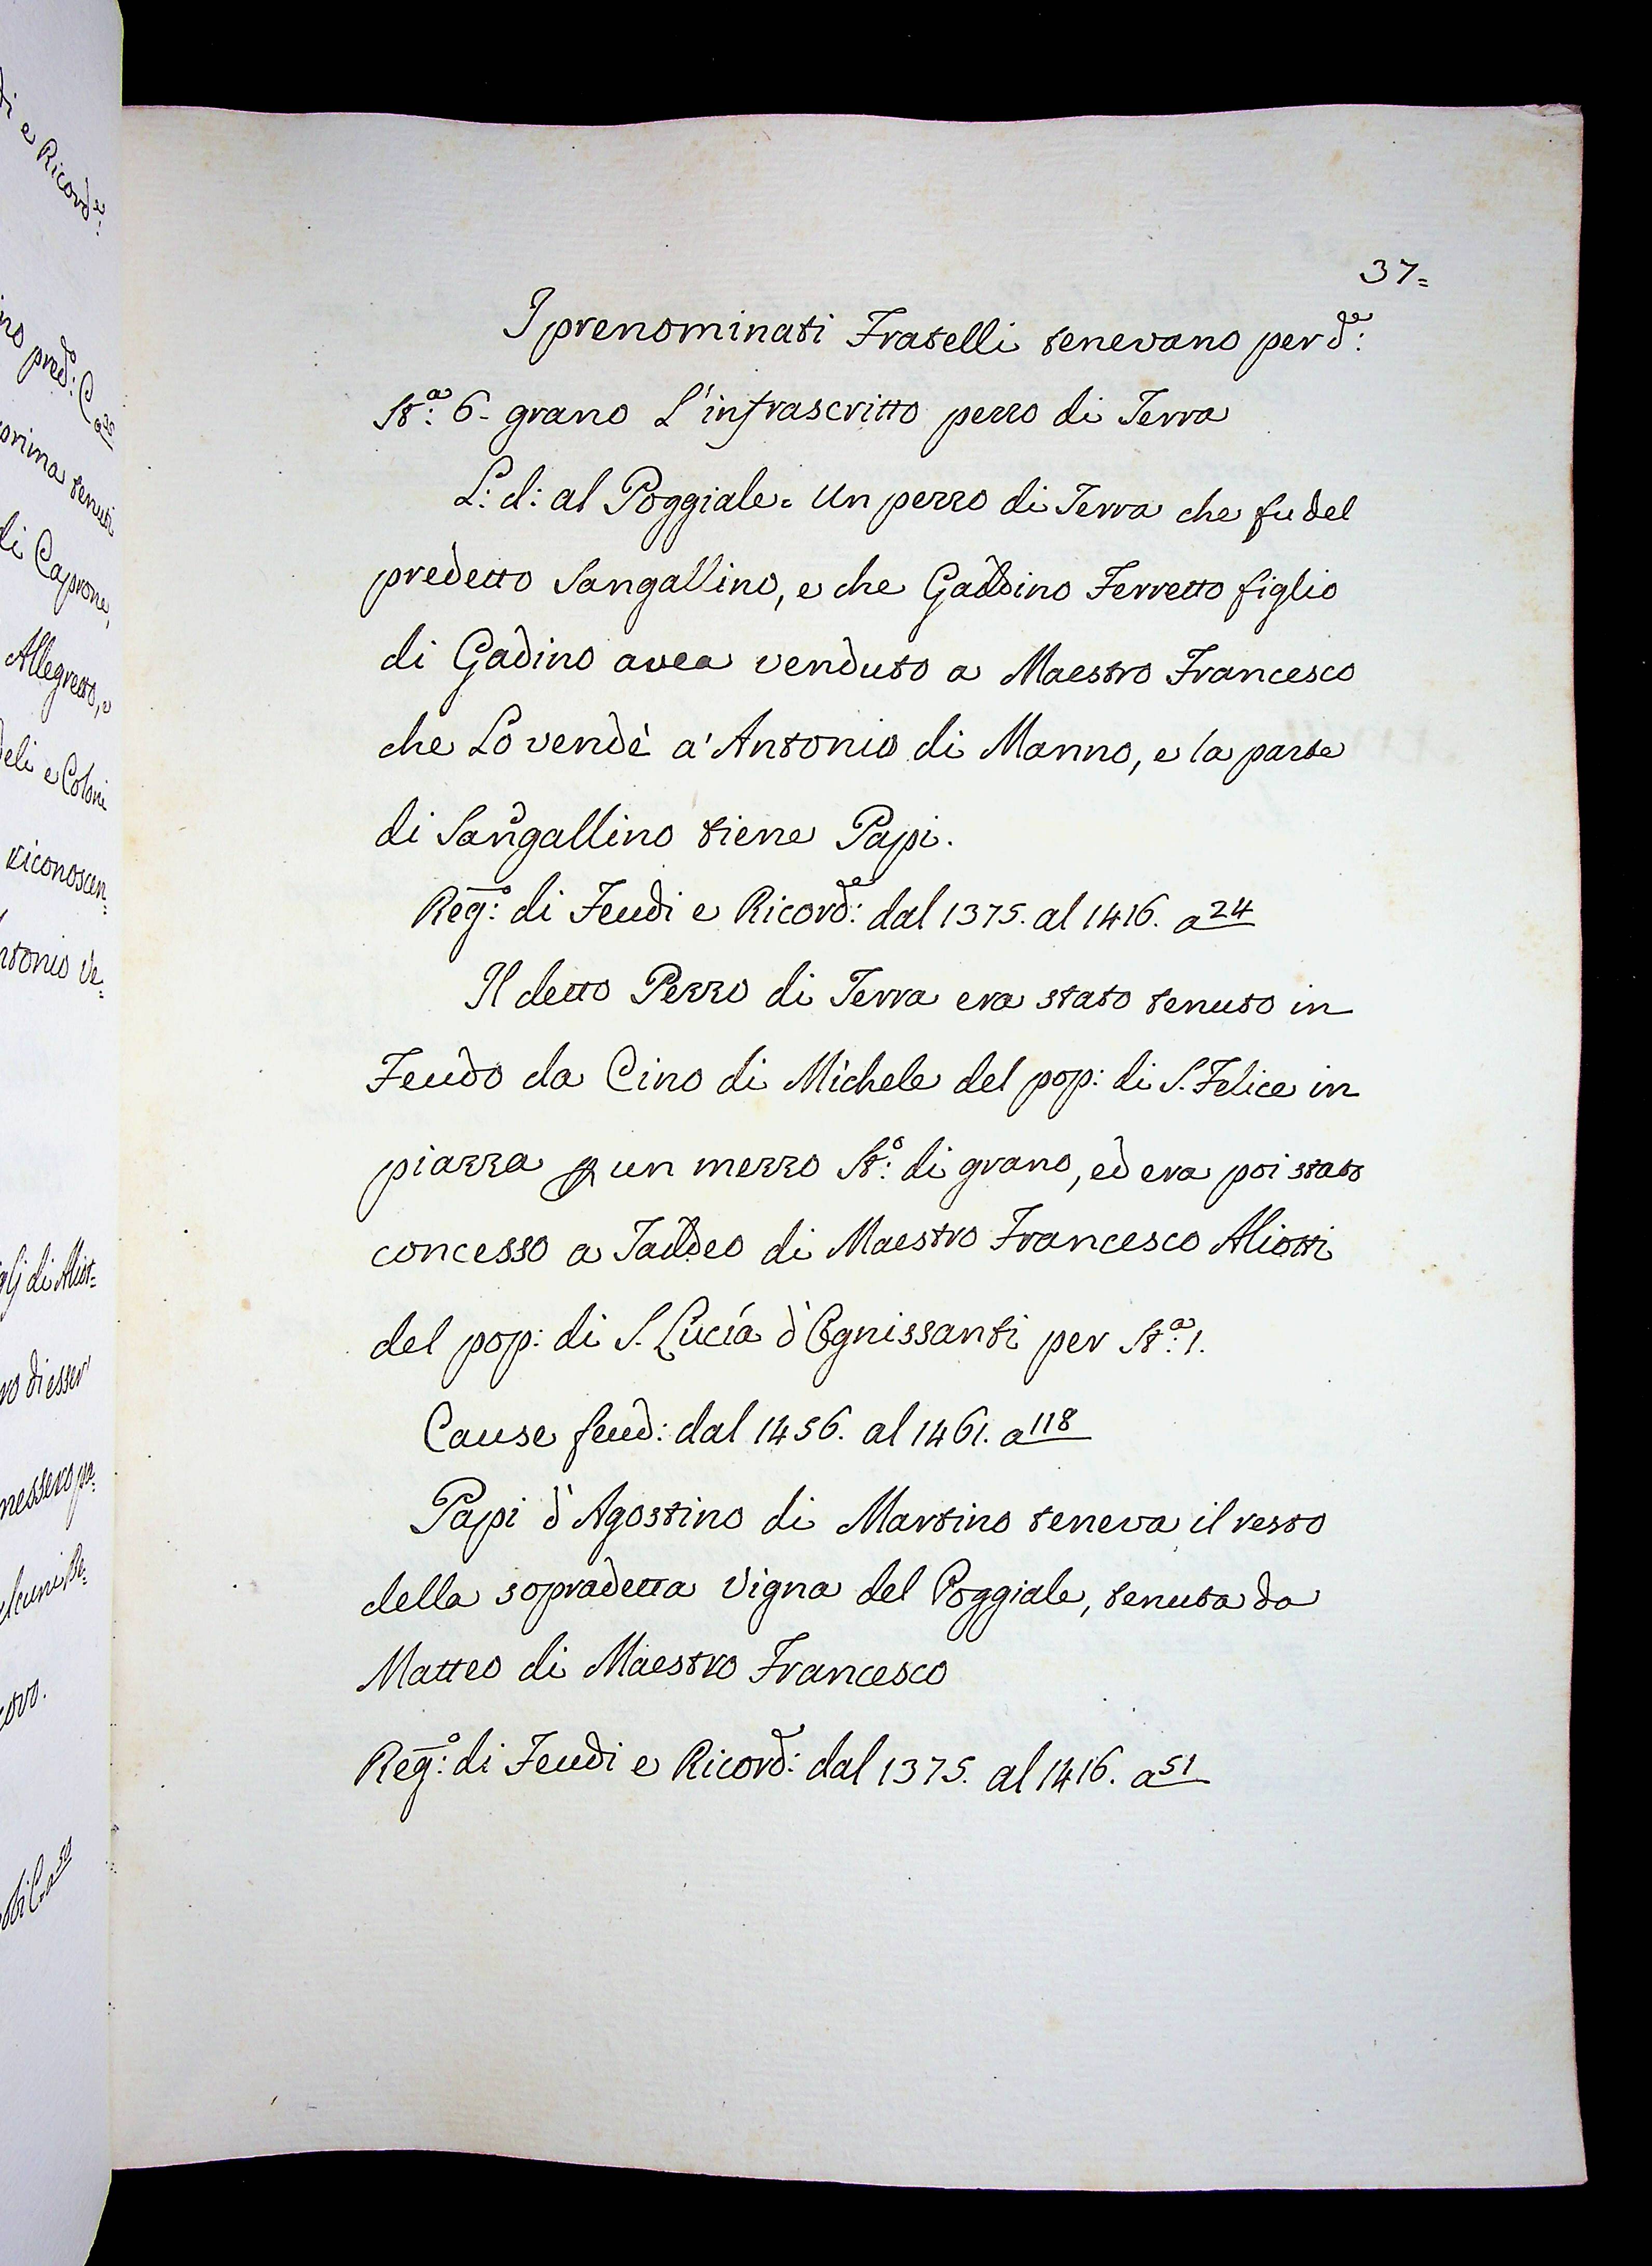 37=
I prenominati Fratelli tenevano per d.e:
St.a: 6- grano L'infrascritto pezzo di Terra
L: d: al Poggiale = Un pezzo di Terra che fu del
predetto Sangallino, e che Gaddino Ferretto figlio
di Gadino avea venduto a Maestro Francesco
che Lo vendè a' Antonio di Manno, e la parte
di Sangallino tiene Papi.
Reg.o: di Feudi e Ricord.e: dal 1375. al 1416. a 24
Il detto Pezzo di Terra era stato tenuto in
Feudo da Cino di Michele del pop: di S. Felice in
piazza p un mezzo St.o: di grano, ed era poi stato
concesso a Taddeo di Maestro Francesco Aliotti
del pop: di S. Lucía d'Ognissanti per St.a: 1.
Cause feud: dal 1456. al 1461. a 118
Papi d'Agostino di Martino teneva il resto
della sopradetta Vigna del Poggiale, tenuta da
Matteo di Maestro Francesco
Reg.o: di Feudi e Ricord: dal 1375. al 1416. a 51